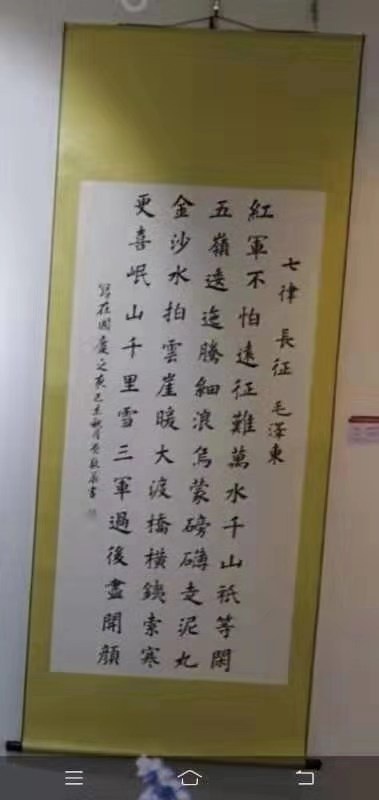 七律 長征 毛澤東
紅軍不怕遠征難萬水千山祇等閑
五嶺逶迤騰細浪烏蒙磅礴走泥丸
金沙水拍雲崖暖大渡橋橫銕索寒
更喜岷山千里雪三軍過後盡開顏
寫在国慶之 秋月 書